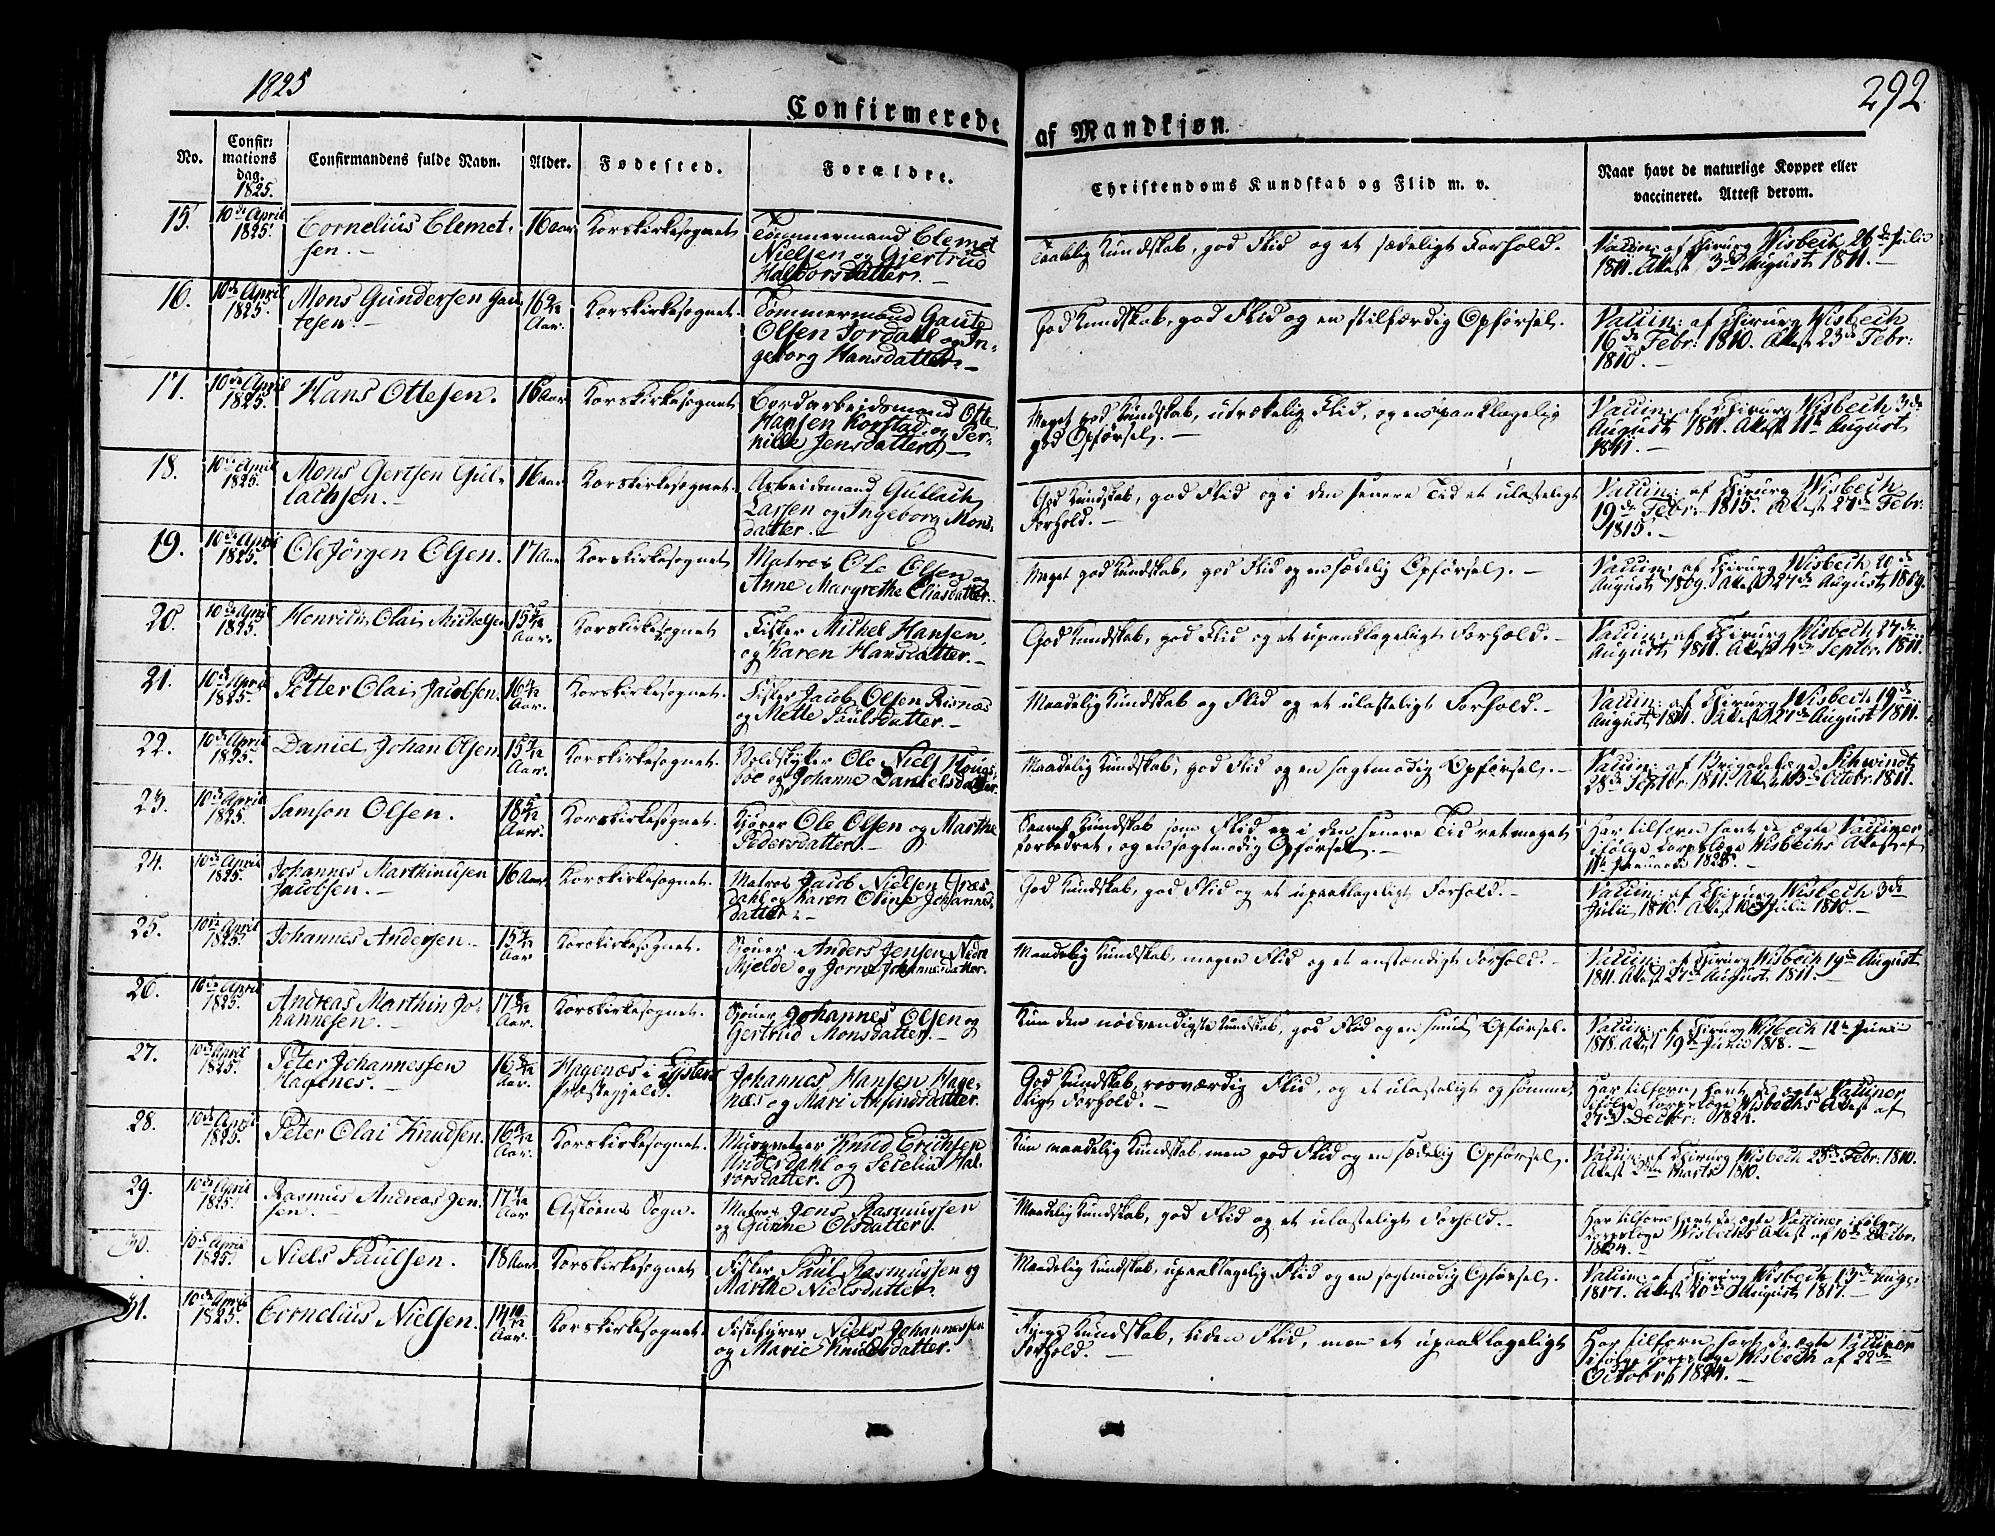 1825
292
Confirmerede af Mandkjøn.
No.
Confirmations dag. 1825.
Confirmandens fulde Navn.
Alder.
Fødested.
Forældre.
Christendoms Kundskab og Flid m. v.
Naar havt de naturlige Kopper eller
vaccineret. Attest derom.
15. 10de April 1825. Cornelius Clemetsen. 16 aar Korskirkesognet
Tømmermand Clemet
Nielsen og Gjertrud
Halvorsdatter.
god Flid og et sædeligt Forhold.
Vaccin: af Chirurg Wisbech 26de Julii
1811. Attest 3de August 1811.
16. 10de April 1825. Mons Gundersen Gautesen. 16 Aar. Korskirkesognet.
Tømmermand Gaute
Olsen Jordahl og In-
geborg Hansdatter.
God Kundskab, god Flid og en stilfærdig Opførsel.
Vaccin: af Chirurg Wisbech
16de Febr: 1810. Attest 23de Febr:
1810.
17. 10de April 1825. Hans Ottesen. 16 Aar. Korskirkesognet.
Hansen Korstad og Per-
nille Jensdatter.
Meget god Kundskab, Flid, og en upaaklagelig
god Opførsel.
Vaccin: af Chirurg Wisbech 3de
August 1811. Attest 11te August
1811.
18. 10de April 1825. Mons Gertsen Gullachsen. 16 aar Korskirkesognet.
Arbeidsmand Gullach
Larsen og Ingeborg Mons-
datter.
God Kundskab, god Flid og i den senere Tid et ulasteligt
Forhold.
Vaccin: af Chirurg Wisbech
19de Febr: 1815. Attest 27de Febr:
1815.
19. 10de April 1825. Ole Jørgen Olsen. 17 Aar Korskirkesognet.
Matros Ole Olsen og
Anne Margrethe
Meget god Kundskab, god Flid og en sædelig Opførsel.
Vaccin: af Chirurg Wisbech 20de
August 1809. Attest 27de August 1809.
20. 10de April 1825. Henrich Olai Michelsen 15 Aar. Korskirkesognet
Fisker Michel Hansen
og Karen Hansdatter.
God Kundskab, god Flid og et upaaklageligt Forhold.
Vaccin: af Chirurg Wisbech 27de
August 1811. Attest 4de Septbr: 1811.
21. 10de April 1825. Petter Olai Jacobsen. 16 Aar. Korskirkesognet.
Fisker Jacob Olsen Risnæs
og Mette Paulsdatter.
Maadelig Kundskab og Flid og et ulasteligt Forhold.
Vaccin: af Chirurg Wisbech 19de
August 1811. Attest 27de August 1811.
22. 10de April 1825. Daniel Johan Olsen. 15 Aar. Korskirkesognet.
Ole Niels
og Johanne Danielsdatter.
Maadelig Kundskab, god Flid og en sagtmodig Opførsel.
Vaccin: af Brigadelæge Schwindt
28de Septbr: 1811. Attest Octobr: 1811.
23. 10de April 1825. Samson Olsen. 18 5/12 Aar. Korskirkesognet.
Ole Olsen og Marthe
Pedersdatter.
Kundskab som Flid er i den senere Tid ret meget
forbedret, og en sagtmodig Opførsel.
Har tilforn havt de ægte Vacciner
ifølge Corpslæge Wisbechs Attest af
11te Januarii 1825.
24. 10de April 1825. Johannes Marthinusen Jacobsen. 16 Aar. Korskirkesognet.
Matros Jacob Nielsen Græs-
dahl og Karen Oline Johannes-
datter.
God Kundskab, god Flid og et upaaklageligt Forhold.
Vaccin: af Chirurg Wisbech 3de
Julii 1810. Attest 10de Julii 1810.
25. 10de April 1825. Johannes Andersen. 15 Aar Korskirkesognet.
Anders Jensen Nedre
Mjelde og Johannesdatter.
Maadelig Kundskab, megen Flid og et anstændigt Forhold.
Vaccin: af Chirurg Wisbech 19de August
1811. Attest 27de August 1811.
26. 10de April 1825. Andreas Marthin Johannesen. 17 Aar. Korskirkesognet.
Johannes Olsen og
Gertrud Monsdatter.
Kun den nødvendigste Kundskab, god Flid og en smuk Opførsel.
Vaccin: af Chirurg Wisbech 12te Junii
1818. Attest 19de Junii 1818.
27. 10de April 1825. Peter Johannessen Hagenes. 16 Aar. Hagenæs i Lysters Præstegjeld.
Johannes Hansen Hage-
næs og Mari Ansindsdatter.
God Kundskab, rosværdig Flid, og et ulasteligt og sømme-
ligt Forhold.
Har tilforn havt de ægte Vacciner
ifølge Corpslæge Wisbechs Attest af
27de Decbr: 1824.
28. 10de April 1825. Peter Olai Knudsen. 16 Aar. Korskirkesognet.
Knud Erichsen
Underdahl og Secelia Hal-
vorsdatter.
Kun maadelig Kundskab, men god Flid og en sædelig Opførsel.
Vaccin: af Chirurg Wisbech 23de Febr: 1810.
Attest Marts 1810.
29. 10de April 1825. Rasmus Andreas Jensen. 17 Aar Askøens Sogn.
Matros Jens Rasmussen
og Gunne Olsdatter.
Maadelig Kundskab, god Flid og et ulasteligt Forhold.
Har tilforn havt de ægte Vacciner ifølge
Corpslæge Wisbechs Attest af 10de Decbr:
1824.
30. 10de April 1825. Niels Paulsen. 18 Aar. Korskirkesognet
Fisker Paul Rasmussen og
Marthe Nielsdatter.
Maadelig Kundskab, upaaklagelig Flid og en sagtmodig Opførsel.
Vaccin: af Chirurg Wisbech 13de Aug:
1817. Attest 20de August 1817.
31. 10de April 1825. Cornelius Nielsen. 14 10/12 Aar. Korskirkesognet.
Niels Johannessen
og Marie Knudsdatter.
Kundskab, liden Flid, men et upaaklageligt
Forhold.
Har tilforn havt de ægte Vacciner
ifølge Corpslæge Wisbech af 22de
Octobr: 1824.